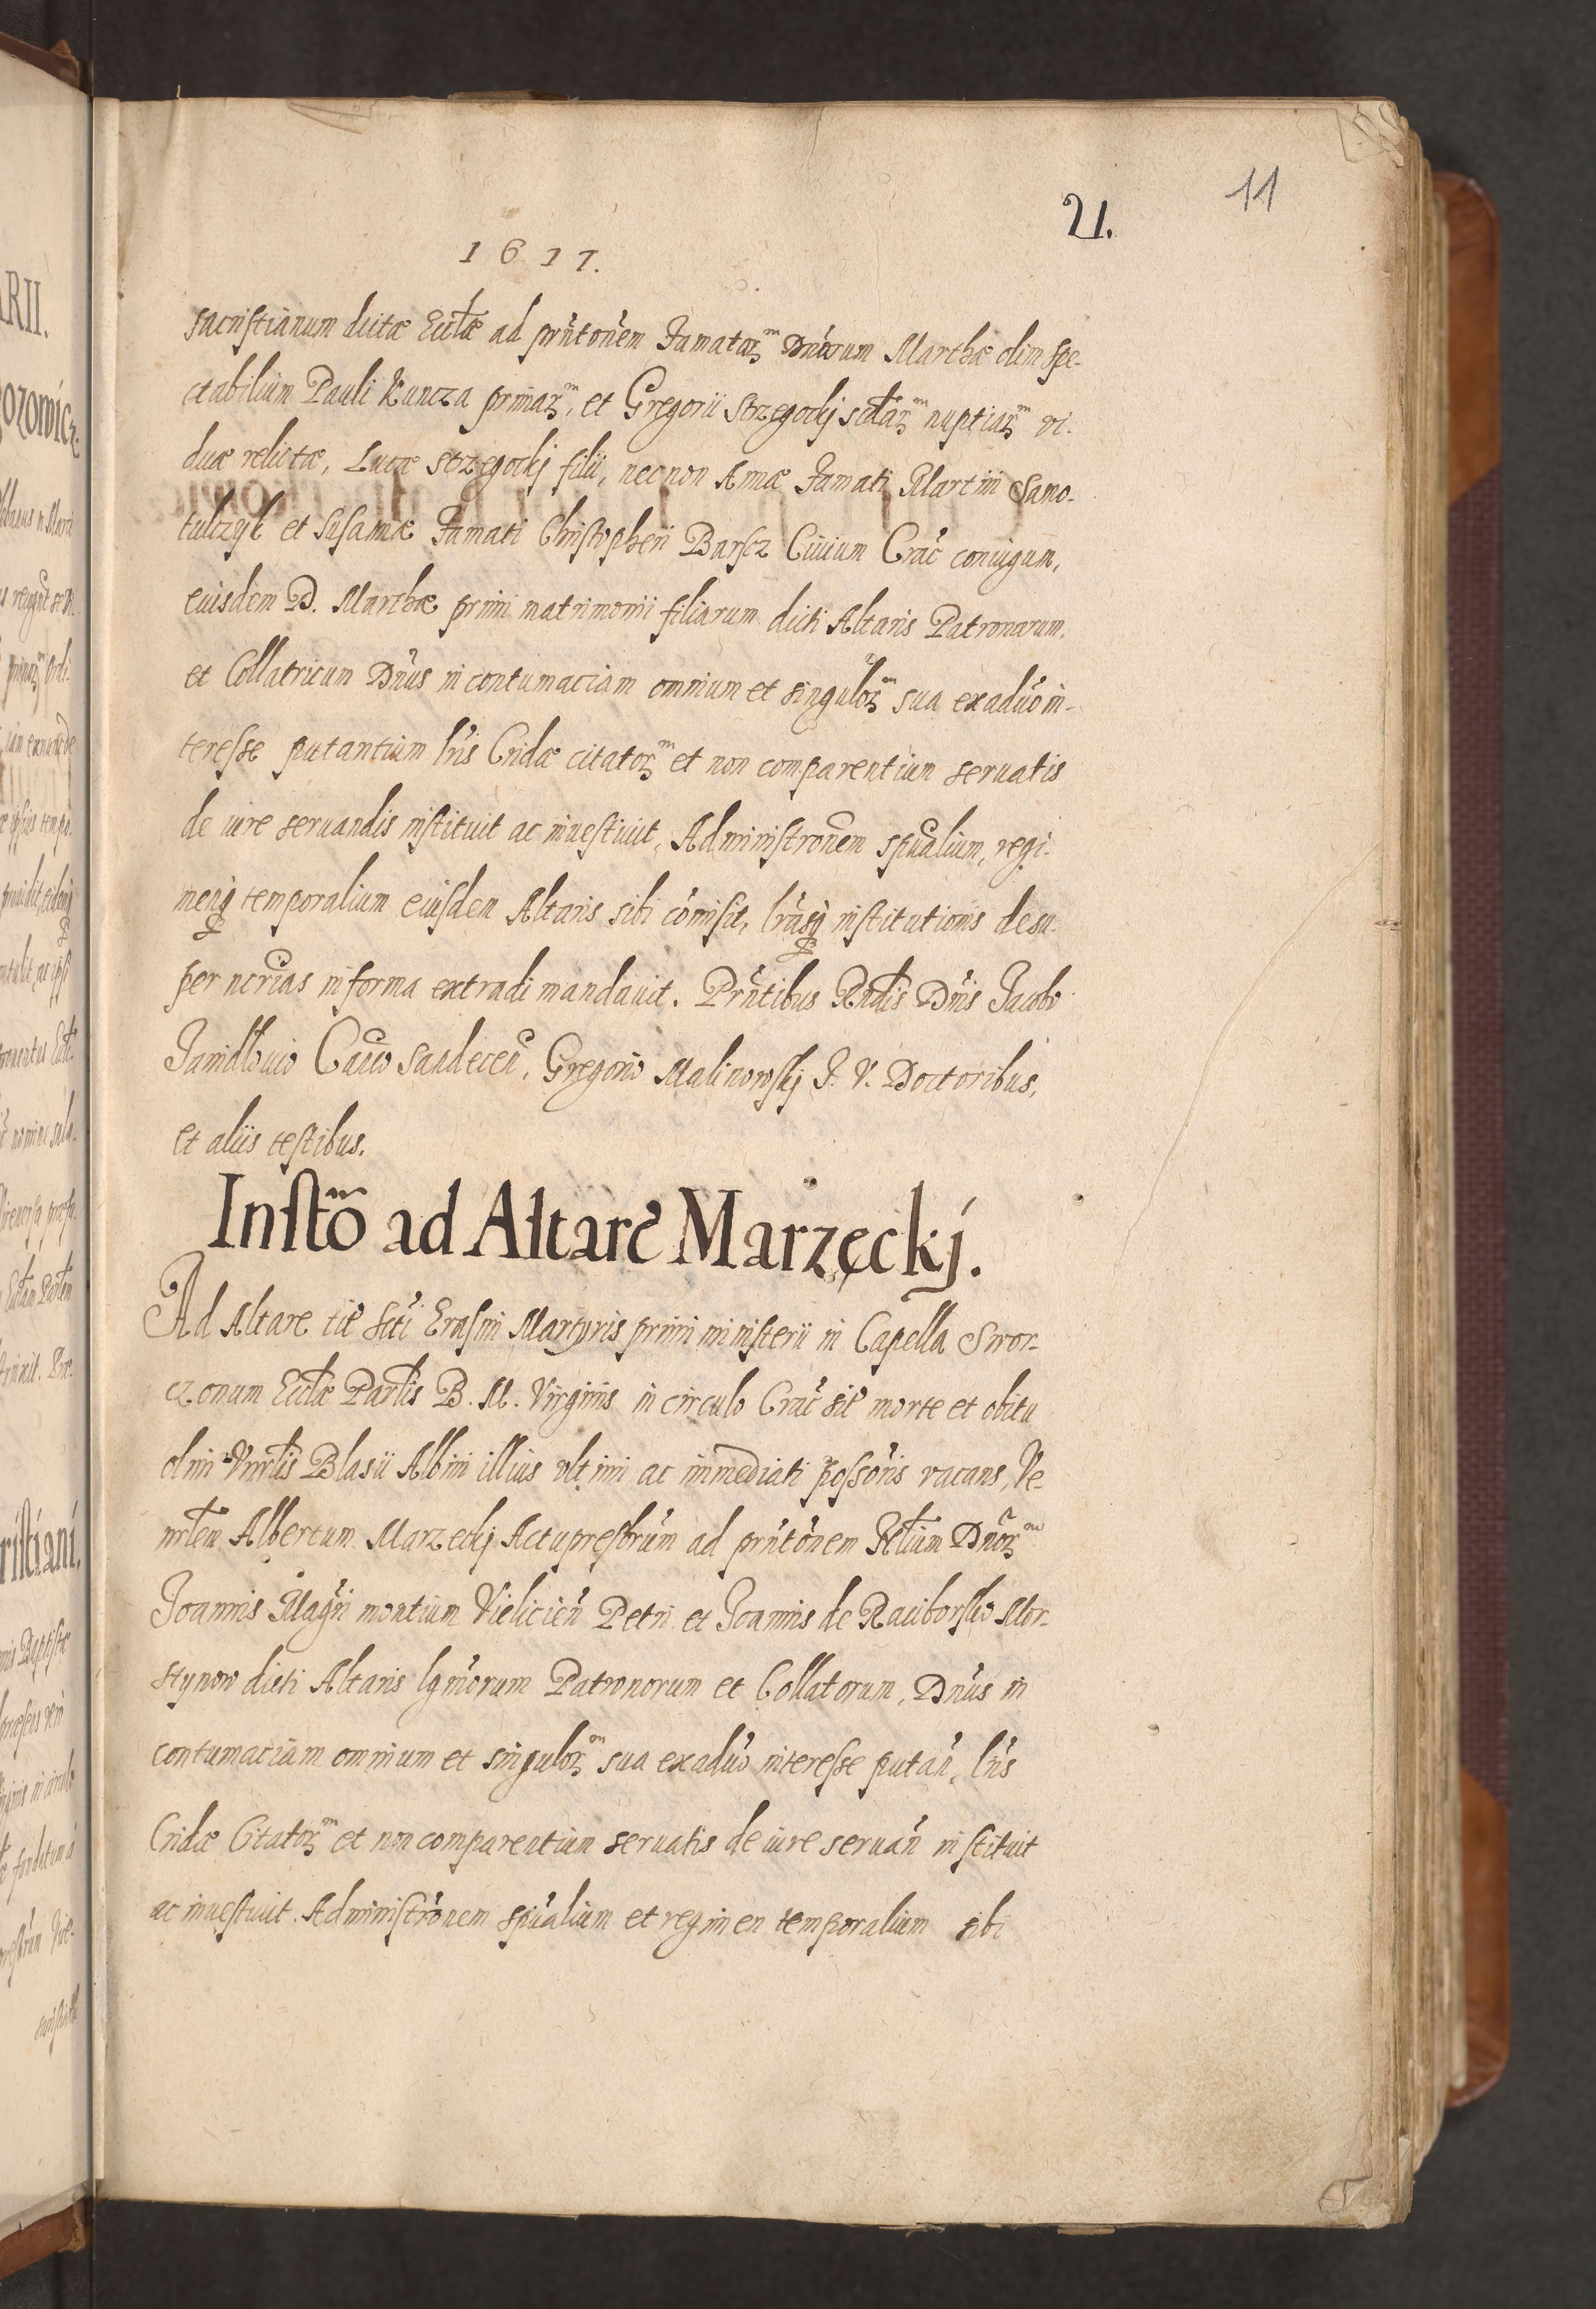 11
21.
1617.
sacristianum dictæ Ecclæ ad prntonem Famatarm Dnarum Marthæ olim spe-
ctabilium Pauli Kuncza primarm, et Gregorii Strzegockj scdarm nuptiarm vi-
duæ relictæ, Lucæ Strzegockj filii, nec non Annæ Famati Martini Samo-
tulczyk et Susannæ Famati Christopheri Barscz Ciuium Crac coniugum,
eiusdem D. Marthæ primi matrimonii filiarum dicti Altaris Patronarum,
et Collatricum Dnus in contumaciam omnium et singulorm sua exaduo in-
teresse putantium lris Cridæ citatorm et non comparentium seruatis
de iure seruandis instituit ac inuestiuit, Administronem spualium, regi-
menq temporalium eiusdem Altaris sibi comisit, lrasq institutionis desu-
per ncrias in forma extradi mandauit. Prntibus Rndis Dnis Jacobo
Janidlouio Canco Sandecen, Gregorio Malinowskj J. V. Doctoribus,
et aliis testibus.
Instõ ad Altare Marzęckj.
Ad Altare tit Scti Erasmi Martyris primi ministerii in Capella Swor-
czonum Ecclæ Parlis B. M. Virginis in circulo Crac sit morte et obitu
olim Vnrlis Blasii Albini illius vltimi ac immediati possoris vacans, Ve-
nrlem Albertum Marzeckj Actupresbrum ad prntonem Dnorm
Joannis Magri montium Vielicien Petri et Joannis de Raciborsko Mor-
stynow dicti Altaris lgmorum Patronorum et Collatorum, Dnus in
contumaciam omnium et singulorm sua exaduo interesse putan, lris
Cridæ Citatorm et non comparentium seruatis de iure seruan instituit
ac inuestiuit. Administronem spualium et regimen temporalium sibi